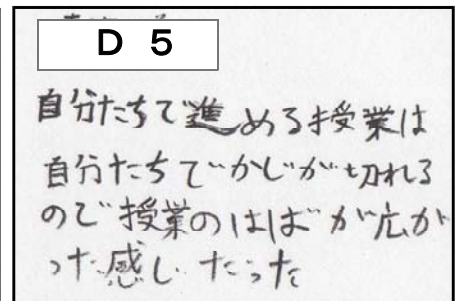 D 5
自分たちで進める授業は
自分たちでかじが切れる
ので授業のはばが広が
った感じだった